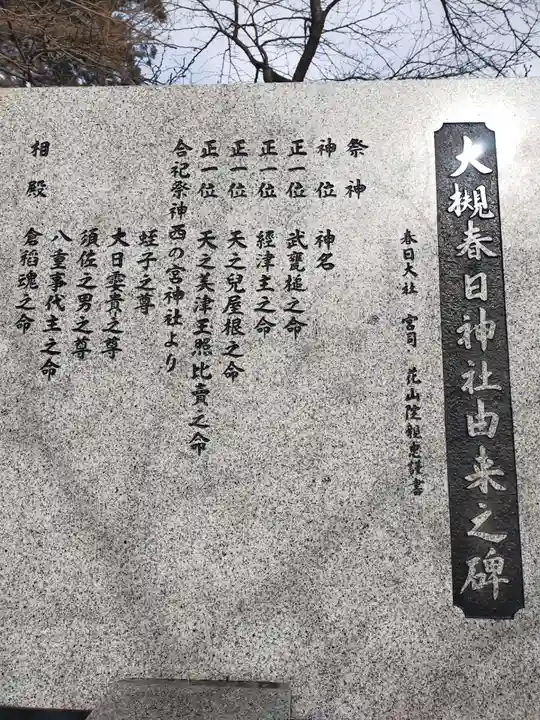 大槻春日神社由来之碑
春日大社 宮司 花山院親忠謹書
祭神
神位 神名
正一位 武甕槌之命
正一位 經津主之命
正一位 天之兒屋根之命
正一位 天之美津王照比賣之命
合祀祭神西の宮神社より
蛭子之尊
大日孁貴之尊
須佐之男之尊
八重事代主之命
相殿 倉稻魂之命